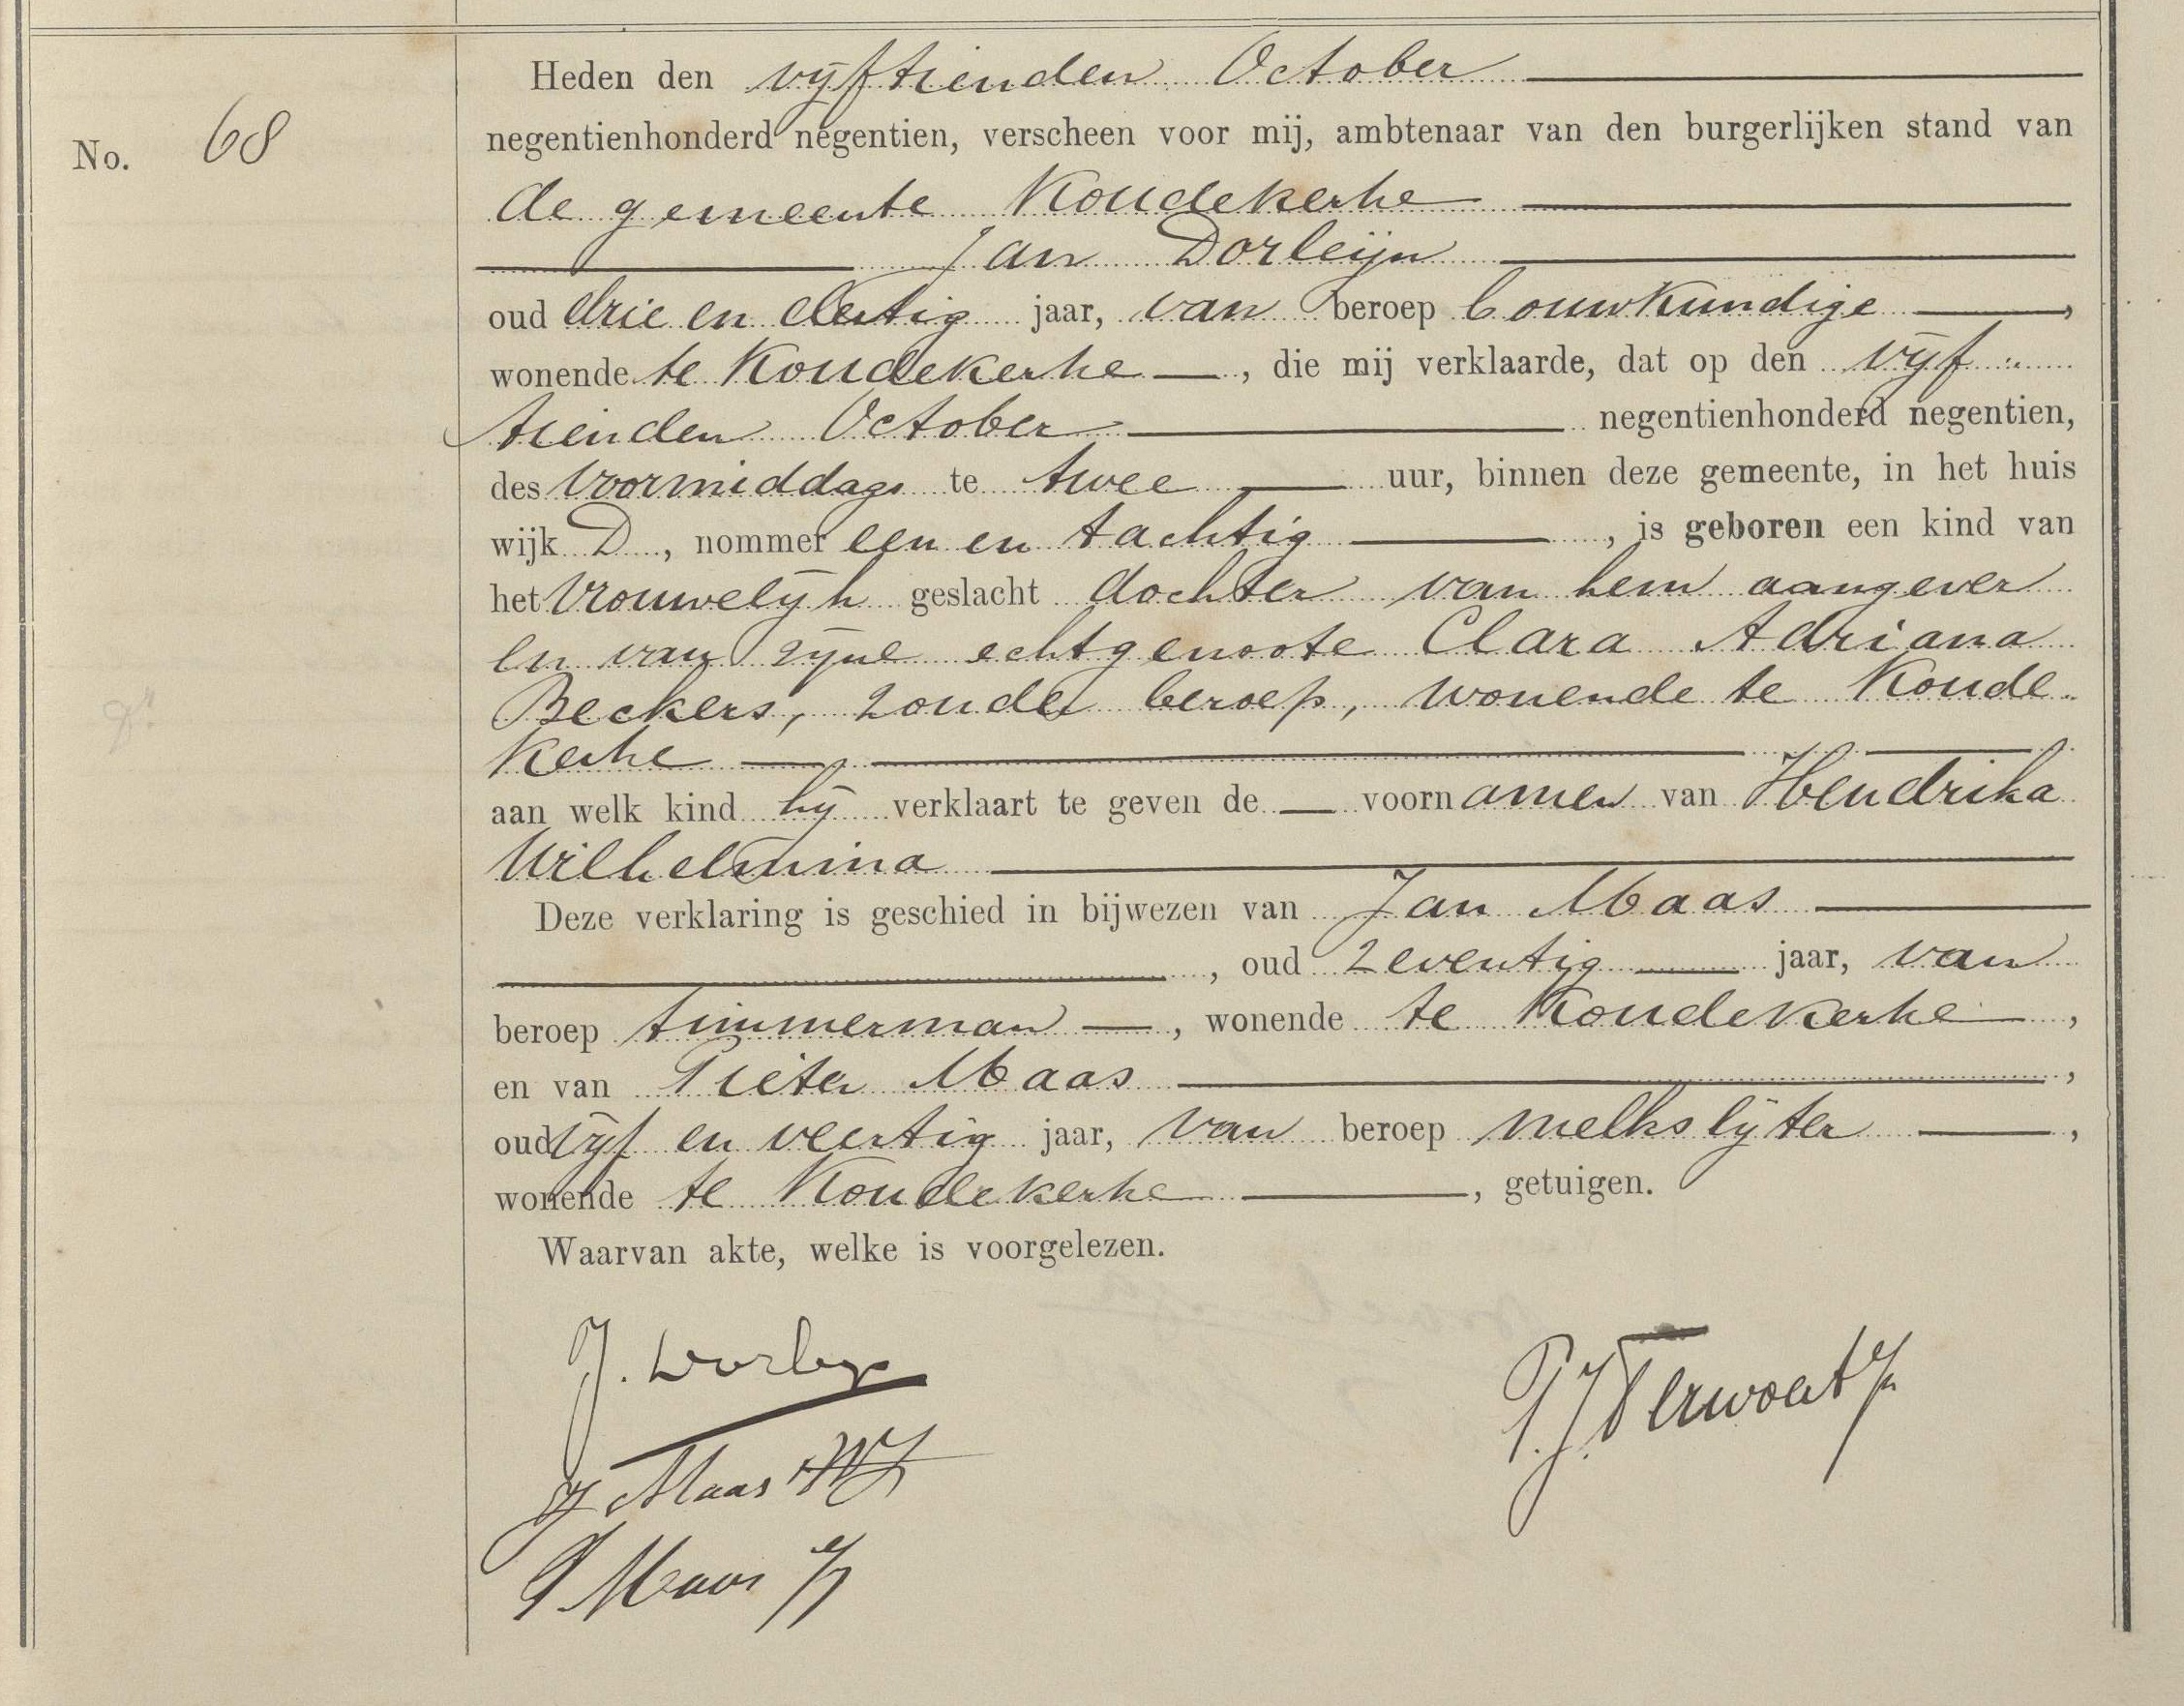 Heden den vijftienden October
No. 68
negentienhonderd negentien, verscheen voor mij, ambtenaar van den burgerlijken stand van
de gemeente Koudekerke
Jan Dorleijn
oud drie en dertig jaar, van beroep bouwkundige,
wonende te Koudekerke, die mij verklaarde, dat op den vijf
tienden October negentienhonderd negentien,
des voormiddags te twee uur, binnen deze gemeente, in het huis
wijk D, nommer een en tachtig, is geboren een kind van
het vrouwelijk geslacht dochter van hem aangever
en van zijne echtgenoote Clara Adriana
Beckers, zonder beroep, wonende te Koude-
kerke
aan welk kind hij verklaart te geven de voornamen van Hendrika
Wilhelmina
Deze verklaring is geschied in bijwezen van Jan Maas
, oud zeventig jaar, van
beroep timmerman, wonende te Koudekerke,
en van Pieter Maas,
oud vijf en veertig jaar, van beroep melkslijter,
wonende te Koudekerke, getuigen.
Waarvan akte, welke is voorgelezen.
J. Dorleijn
J Maas
P Maas